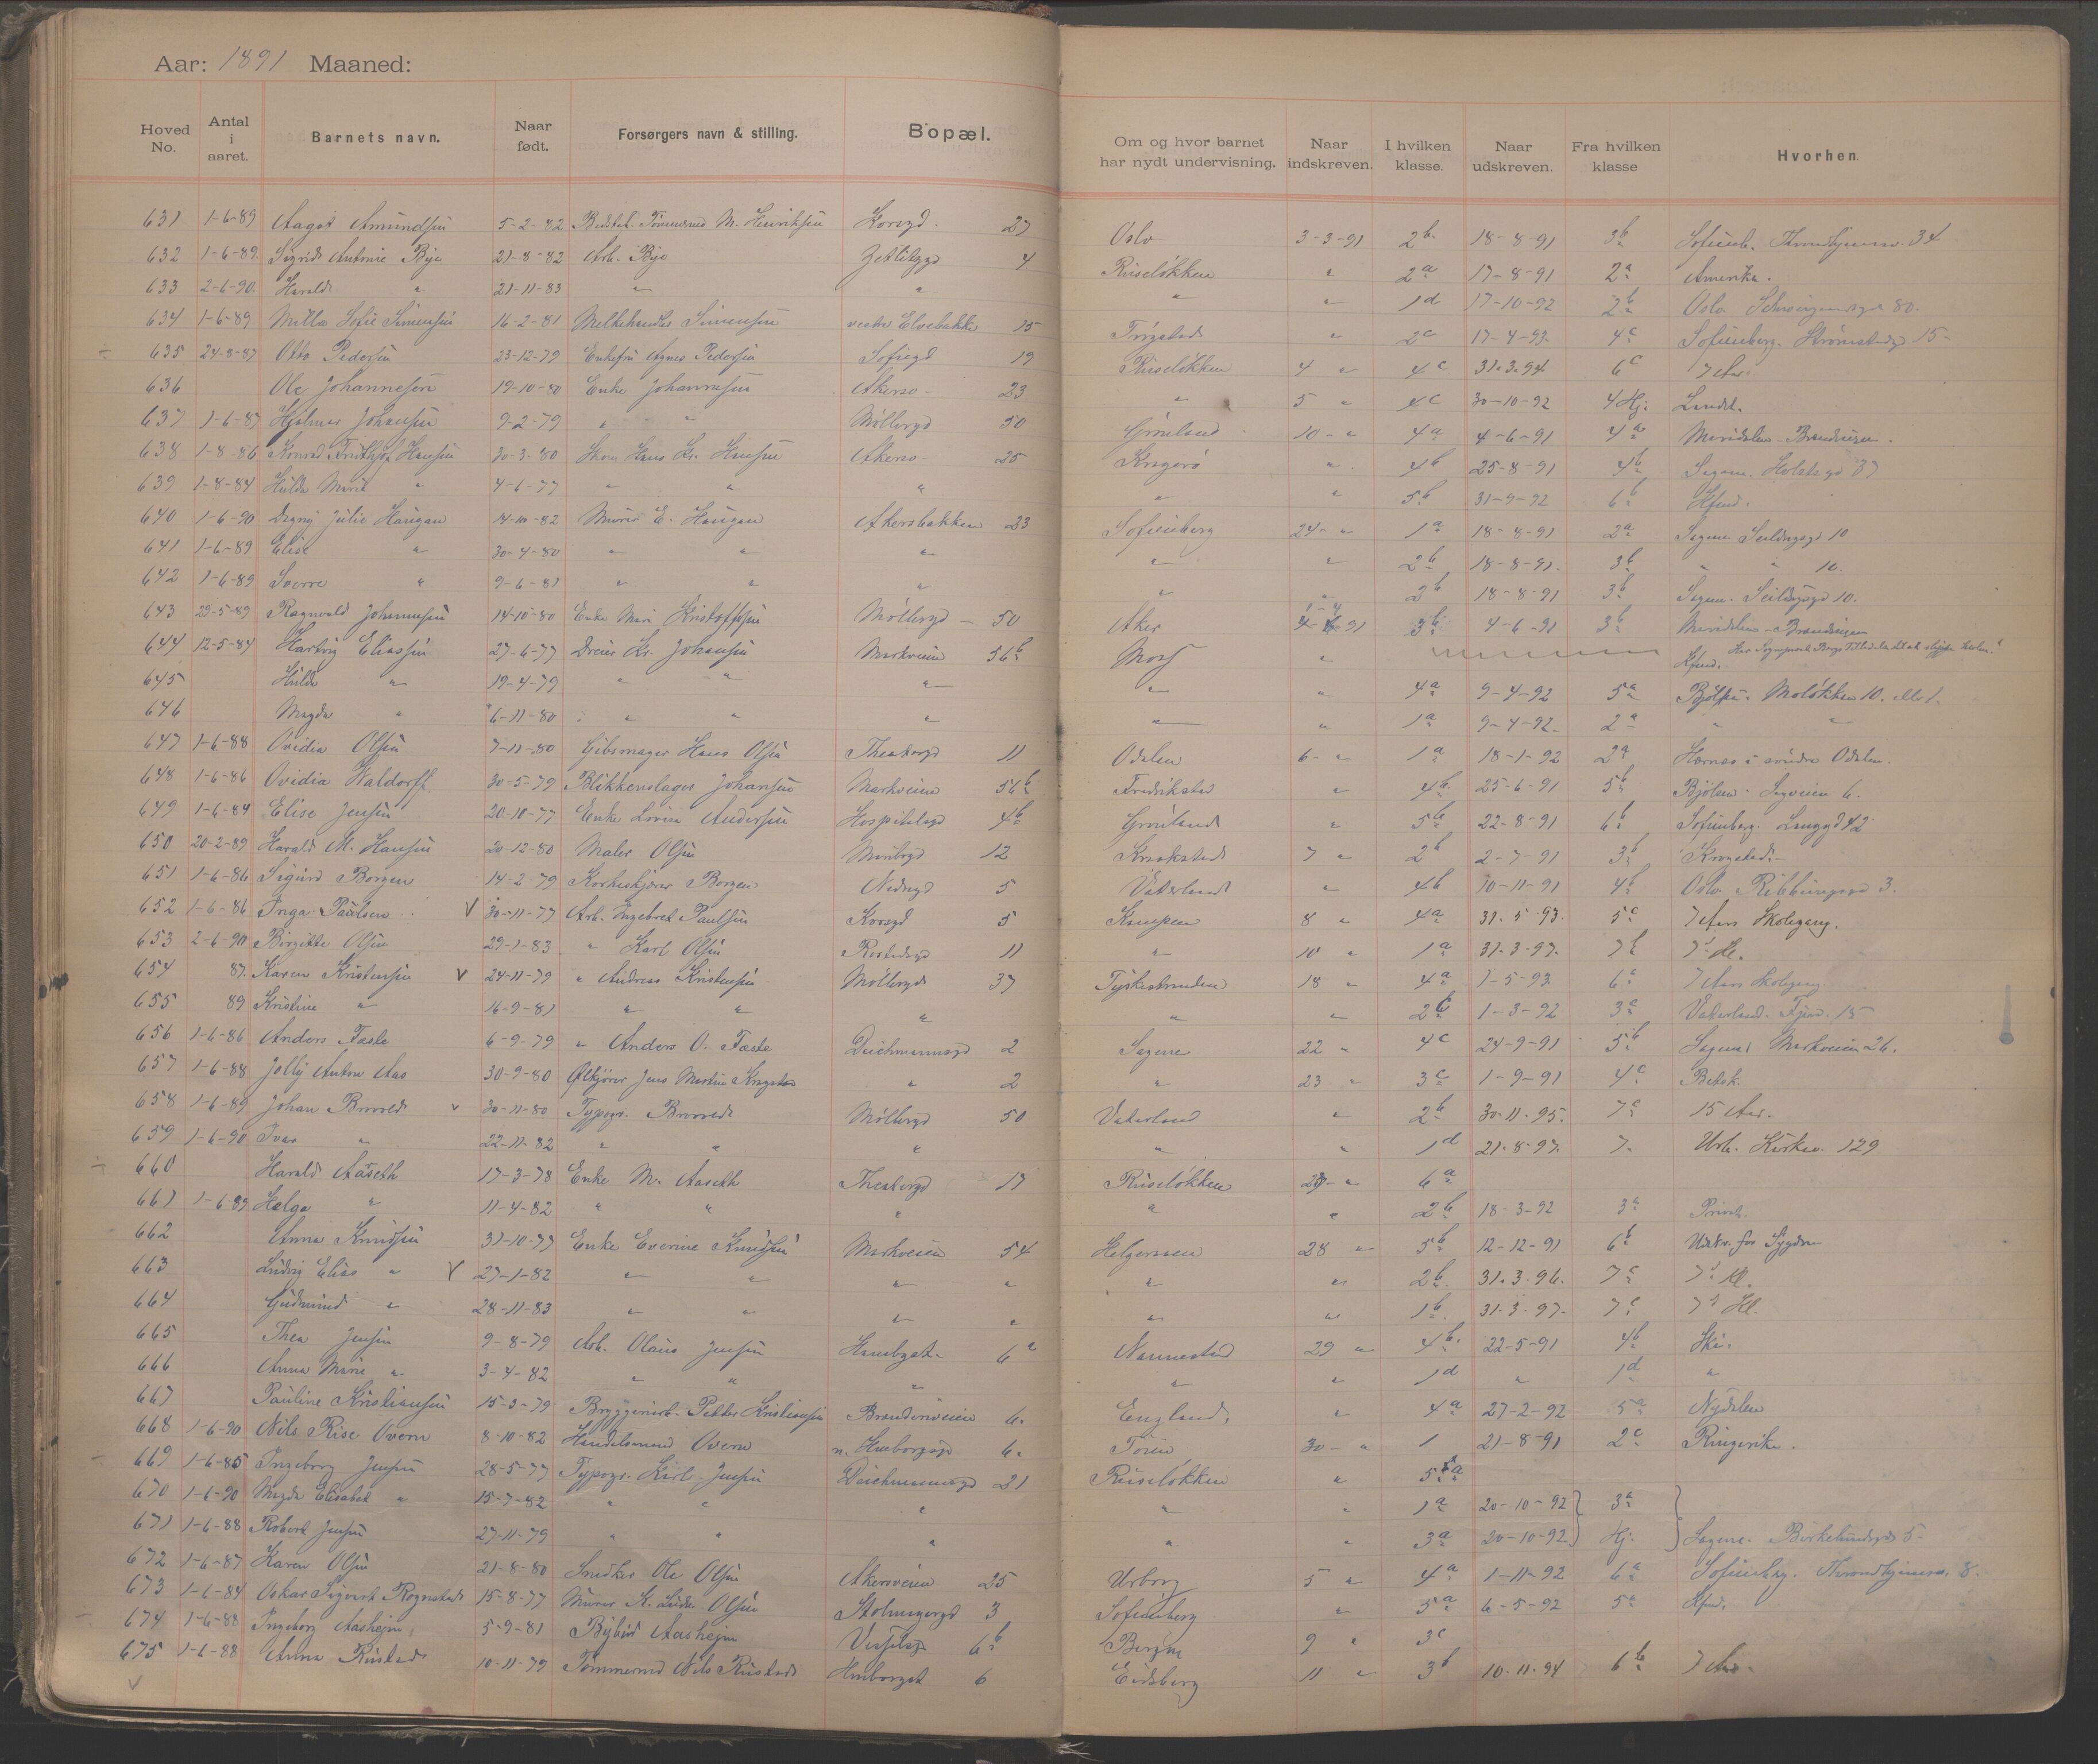 Aar: 1891 Maaned:
Hoved No. Antal i aaret. Barnets navn. Naar født. Forsørgers navn & stilling. Bopæl. Om og hvor barnet har nydt undervisning. Naar indskreven. I hvilken klasse. Naar udskreven. Fra hvilken klasse Hvorhen.
631 1-6-89 Aagot Amundsen 5-2-82 M. Henriksen Korsgd. 27 Oslo 3-3-91 2b 18-8-91 3b Sofienb. Trondhjemsv. 34
632 1-6-89 Sigrid Antonie Bye 21-8-82 Arb. Bye Zetlitzgd 4 Ruseløkken " 2a 17-8-91 2a Amerika.
633 2-6-90 Harald " 21-11-83 " " " " 1d 17-10-92 2b Oslo 80.
634 1-6-89 Milla Sofie Simensen 16-2-81 Melkehandler Simensen vestre Elvebakke 15 Trøgstad " 2c 17-4-93 4c Sofienberg. Strømstadgd 15
÷ 635 24-8-87 Otto Pedersen 23-12-79 Enkefru Agnes Pedersen Sofiegd 19 Ruseløkken 4 " 4c 31.3.94 6c 7 Aar.
636 Ole Johannesen 19-10-80 Enke Johannesen Akersv. 23 " 5 " 4c 30-10-92 4 Hj. Landet.
637 1-6-87 Hjalmar Johansen 9-2-79 " " Møllergd 50 Grønland 10 " 4a 4-6-91 4a Maridalen - Brændingen.
638 1-8-86 Konrad Frithjof Hansen 30-3-80 Skom. Hans Kr. Hansen Akersv. 25 Kragerø " 4b 25-8-91 4b Sagene. Holstsgd 37
639 1-8-84 Hulda Marie " 4-6-77 " " " " " 5b 31-9-92 6b Kfund.
640 1-6-90 Dagny Julie Haugan 14-10-82 Murer E. Haugan Akersbakken 23 Sofienberg 24 " 1a 18-8-91 2a Sagene Seildugsgd 10
641 1-6-89 Elise " 30-4-80 " " " " " 2b 18-8-91 3b " " 10.
642 1-6-89 Sverre " 9-6-81 " " " " " 2b 18-8-91 3b Sagene. Seildugsgd 10.
643 29-5-89 Ragnvald Johannesen 14-10-80 Enke Mari Kristoffersen Møllergd 50 Aker 1-4 4-91 3b 4-6-91 3b Maridalen - Brændingen
644 12-5-84 Hartvig Eliassen 27-6-77 Dreier Kr. Johansen Markveien 56b Moss " Kfund.
645 Hulda " 19-4-79 " " " " " 4a 9-4-92 5a Bjølsen. Moløkken 10.
646 Magda " 6-11-80 " " " " " 1a 9-4-92 2a " "
647 1-6-88 Ovidia Olsen 7-11-80 Gibsmager Hans Olsen Theatergd 11 Odalen 6 " 1a 18-1-92 2a Harnes i søndre Odalen.
648 1-6-86 Ovidia Waldorff 30-5-79 Blikkenslager Johansen Markveien 56b Fredrikstad " 4b 25-6-91 5b Bjølsen - Sagveien 6.
649 1-6-84 Elise Jensen 20-10-77 Enke Lovise Andersen Hospitalsgd 4b Grønland " 5b 22-8-91 6b Sofienberg. Langgd 42
650 20-2-89 Harald M. Hansen 20-12-80 Maler Olsen Maribogd 12 Kraakstad 7 " 2b 2-7-91 3b Krogstad.
651 1-6-86 Sigurd Borgen 14-2-79 Korkeskjærer Borgen Nedregd 5 Vaterland " 4b 10-11-91 4b Oslo 3.
652 1-6-86 Inga Paulsen V 30-11-77 Arb. Ingebret Paulsen Korsgd 5 Kampen 8 " 4a 31.5.93. 5c 7 Aars Skolegang.
653 2-6-90 Birgitte Olsen 29-1-83 " Karl Olsen Rostedsgd 11 " 10 " 1a 31.3.97. 7b 7de Kl.
654 87. Karen Kristensen V 24-11-79 " Andreas Kristensen Møllergd 37 Tyskestranden 18 " 4a 1-5-93 6c 7 Aars Skolegang
655 89 Kristine " 16-9-81 " " " " " 2b 1-3-92 3a Vaterland. 15
656 1-6-86 Anders Faste 6-9-79 " Anders O. Faste Deichmannsgd 2 Sagene 22 " 4c 24-9-91 5b Sagene Markveien 26.
657 1-6-88 Jolly Anton Aas 30-9-80 Ølkjører Jens Martin Krogstad " 2 " 23 " 3c 1-9-91 4c Betsk.
658 1-6-89 Johan V 30-11-80 Typogr. Møllergd 50 Vaterland " 2b 30-11-95. 7c 15 Aar.
659 1-6-90 Ivar " 22-11-82 " " " " " 1d 21-8-97. 7. Kirkev. 129
÷ 660 Harald Aaseth 17-3-78 Enke M. Aaseth Theatergd 17 Ruseløkken 27 " 6a
661 1-6-89 Helga " 11-4-82 " " " " " 2b 18-3-92 3a Privat.
662 Anna Knudsen 31-10-77 Enke Everine Knudsen Markveien 54 Helgersen 28 " 5b 12-12-91 6b Udskr. for Sygdom
663 Ludvig Elias " V 27-1-82 " " " " " " 2b. 31.3.96. 7c 7de Kl.
664 Gudmund " 28-11-83 " " " " " " 1b. 31-3-97. 7c 7de Kl.
665 Thea Jensen 9-8-79 Arb. Olaus Jensen Hausbgat. 6a Nannestad 29 " 4b 22-5-91 4b Ski.
666 Anna Marie " 3-4-82 " " " " " 1d " 1d "
667 Pauline Kristiansen 15-3-79 Bryggeriarb. Petter Kristiansen Brænderiveien 6. England. " 4a 27-2-92 5a Nydalen
668 1-6-90 Nils Rise Overn 8-10-82 Handelsmand Overn 6. 30 " 1 21-8-91 2c Ringerike.
669 1-6-85 Ingeborg Jensen 28-5-77 Typogr. Karl Jensen Deichmannsgd 21 Ruseløkken " 5a
670 1-6-90 Magda Elisabet " 15-7-82 " " " " " 1a 20-10-92 3a
671 1-6-88 Robert Jensen 27-11-79 " " " " " 3a 20-10-92 Hj. Sagene. Birkelundsgd 5
672 1-6-87 Karen Olsen 21-8-80 Snedker Ole Olsen Akersveien 25 5 " 4a 1-11-92 6a Sofienberg. Trondhjemsv. 8.
673 1-6-84 Oskar Sigvart Rognstad 15-8-77 Murer Olsen Stolmagergd 3 Sofienberg " 5a 6-5-92 5a Kfund.
÷ 674 1-6-88 Ingeborg Aasheim 5-9-81 Bybud Aasheim Vesselsgd 6b Bergen 9 " 3c
675 1-6-88 Anna Rustad 10-11-79 Tømmermd Nils Rustad 6 Eidsberg 11 " 3b 10.11.94 6b 7 Aar.
V